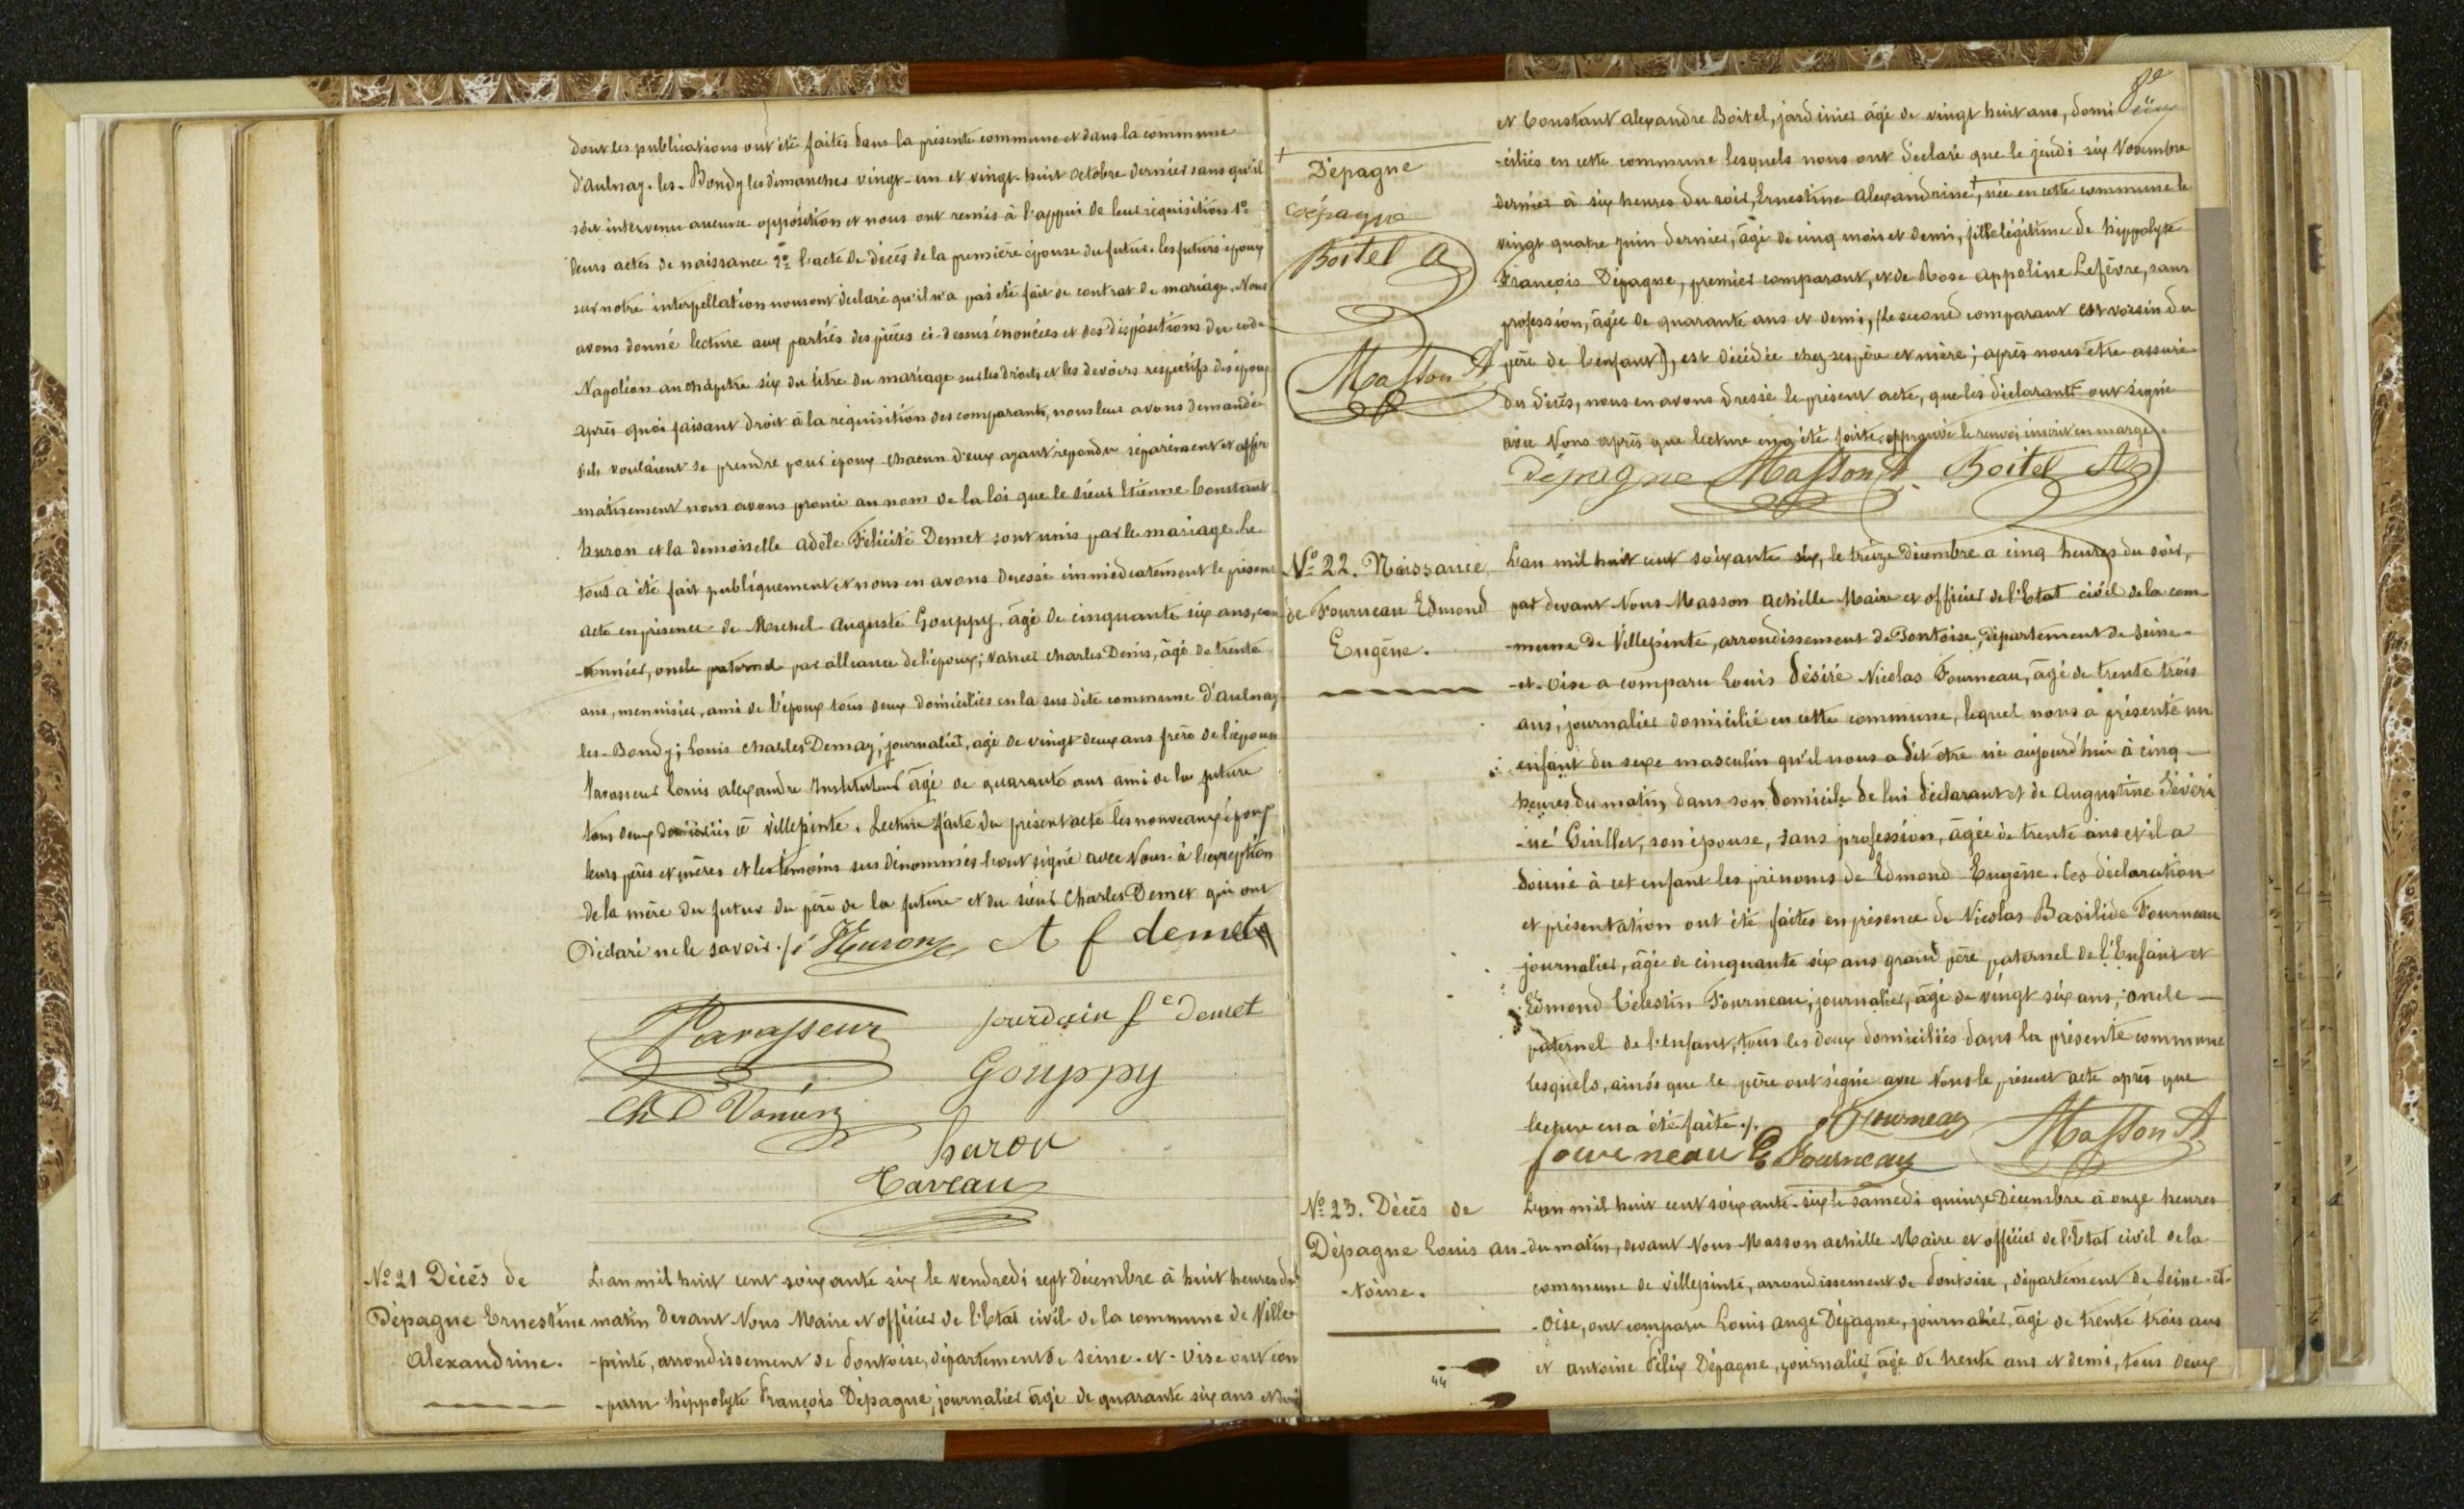 dont les publications ont été faites dans la présente commune et dans la commune
d'aulnay-les-Bondy les dimanches vingt-un et vingt-huit octobre dernier sans qu'il
soit intervenu aucune opposition et nous ont remis à l'appui de leur réquisition 1º
leurs actes de naissance 2º l'acte de décès de la première épouse du futur. les futurs époux
sur notre interpellation nous ont déclaré qu'il n'a pas été fait de contrat de mariage. Nous
avons donné lecture aux parties des pièces ci-dessus énoncées et des dispositions du code
Napoléon au chapitre six du titre du mariage sur les droits et les devoirs respectifs des époux
après quoi faisant droit à la réquisition des comparants, nous leur avons demandé
s'ils voulaient se prendre pour époux chacun d'eux ayant répondu séparément et affir
mativement nous avons prononcé au nom de la loi que le sieur Etienne Constant
huron et la demoiselle adèle Félicité Demet sont unis par le mariage. Le
tout a été fait publiquement et nous en avons dressé immédiatement le présent
acte en présence de Auguste Gouppy, âgé de cinquante six ans,
oncle paternel par alliance de l'époux; Vanier charles Denis, âgé de trente
ans, mennisier, ami de l'époux tous deux domiciliés en la sus dite commune d'aulnay
les-Bondy; Louis charles Demay, journalier, agé de vingt deux ans frère de l'épouse
Varasseur Louis alexandre Instituteur âgé de quarante ans ami de la future
tous deux domiciliés à villepinte. Lecture faite du présent acte les nouveaux époux
leurs pères et mères et les témoins sus dénommés l'ont signé avec Nous à l'exception
de la mère du futur du père de la future et du sieur Charles Demet qui ont
Déclaré ne le savoir ./. Huron A f demet
Varasseur jourdain fe Demet
Gouppy
Ch D Vanier
huron
Caveau
Nº 21 Décès de
Dépagne Ernestine
Alexandrine.
L'an mil huit cent soixante six le vendredi sept Décembre à huit heures du
matin devant Nous Maire et officier de l'Etat civil de la commune de Ville
-pinte, arrondissement de Pontoise, département de Seine-et-Oise ont com
-paru hippolyte François Dépagne, journalier âgé de quarante six ans et demi
et Constant alexandre Boitel, jardinier âgé de vingt huit ans, domi
-ciliés en cette commune lesquels nous ont déclaré que le jeudi six Novembre
dernier à six heures du soir, Ernestine Alexandrine +, née en cette commune le
vingt quatre juin dernier, âgé de cinq mois et demi, fille légitime de hippolyte
François Dépagne, premier comparant, et de Rose appoline Lefèvre, sans
profession, âgée de quarante ans et demi, (le second comparant est voisin du
père de l'enfant), est décédée chez ses père et mère; après nous être assuré
du décès, nous en avons dressé le présent acte, que les déclarants ont signé
avec Nous après que lecture en a été faite. approuvé le renvoi inscrit en marge.
Dépagne Masson A. Boitel A
+
Dépagne
dépagne
Boitel A
Masson A
Nº 22. Naissance
de Fourneau Edmond
Eugène.
L'an mil huit cent soixante six, le treize Décembre a cinq heures du soir,
par devant Nous Masson achille Maire et officier de l'Etat civil de la com
-mune de Villepinte, arrondissement de Pontoise, département de Seine-
-et-Oise a comparu Louis Désiré Nicolas Fourneau, âgé de trente trois
ans, journalier domicilié en cette commune, lequel nous a présenté un
enfant du sexe masculin qu'il nous a dit être né aujourd'hui à cinq
heures du matin, dans son domicile de lui déclarant et de Augustine Séveri
-ne Guillet, son épouse, sans profession, âgée de trente ans et il a
donné à cet enfant les prénoms de Edmond Eugène. Ces déclaration
et présentation ont été faites en présence de Nicolas Basilide Fourneau
journalier, âgé de cinquante six ans grand père paternel de l'Enfant et
Edmond Célestin Fourneau, journalier, âgé de vingt six ans, oncle
paternel de l'enfant, tous les deux domiciliés dans la présente commune
lesquels, ainsi que le père ont signé avec Nous le présent acte après que
lecture en a été faite ./. Fourneau Masson A
fourneau E Fourneau
Nº 23. Décès de
Dépagne Louis an
-toine.
L'an mil huit cent soixante-six le samedi quinze Décembre à onze heures
du matin, devant Nous Masson achille Maire et officier de l'Etat civil de la
commune de villepinte, arrondissement de Pontoise, département de Seine-et-
-Oise, ont comparu Louis ange Dépagne, journalier, âgé de trente trois ans
et antoine Félix Dépagne, journalier âgé de trente ans et demi, tous deux
44